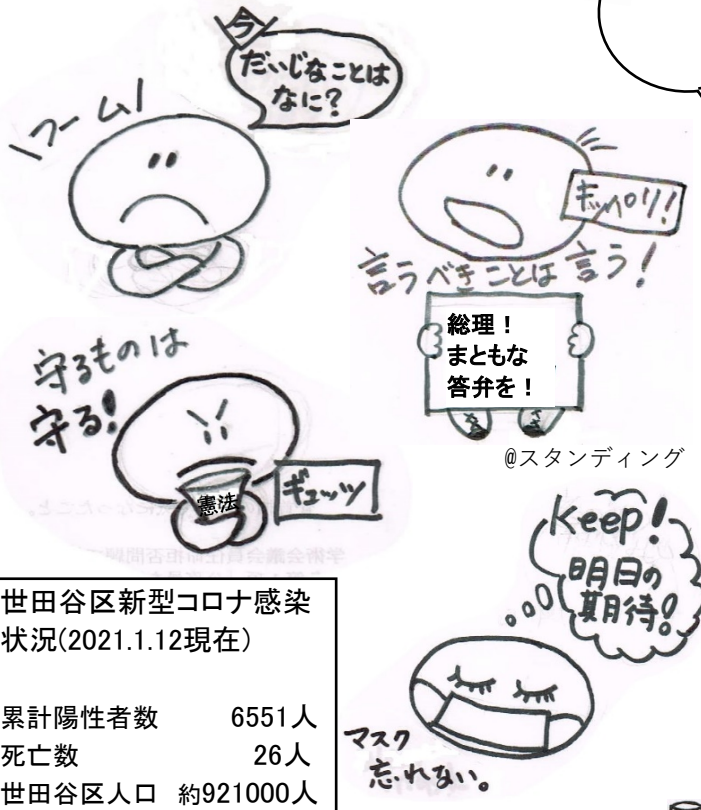 今
だいじなことは
なに?
フーム
キッパリ!
言うべきことは言う!
総理!
まともな
答弁を!
@スタンディング
守るものは
守る!
憲法
ギューッ
Keep!
明日の
期待!
マスク
忘れない。
世田谷区新型コロナ感染
状況(2021.1.12現在)
累計陽性者数 6551人
死亡数 26人
世田谷区人口 約921000人